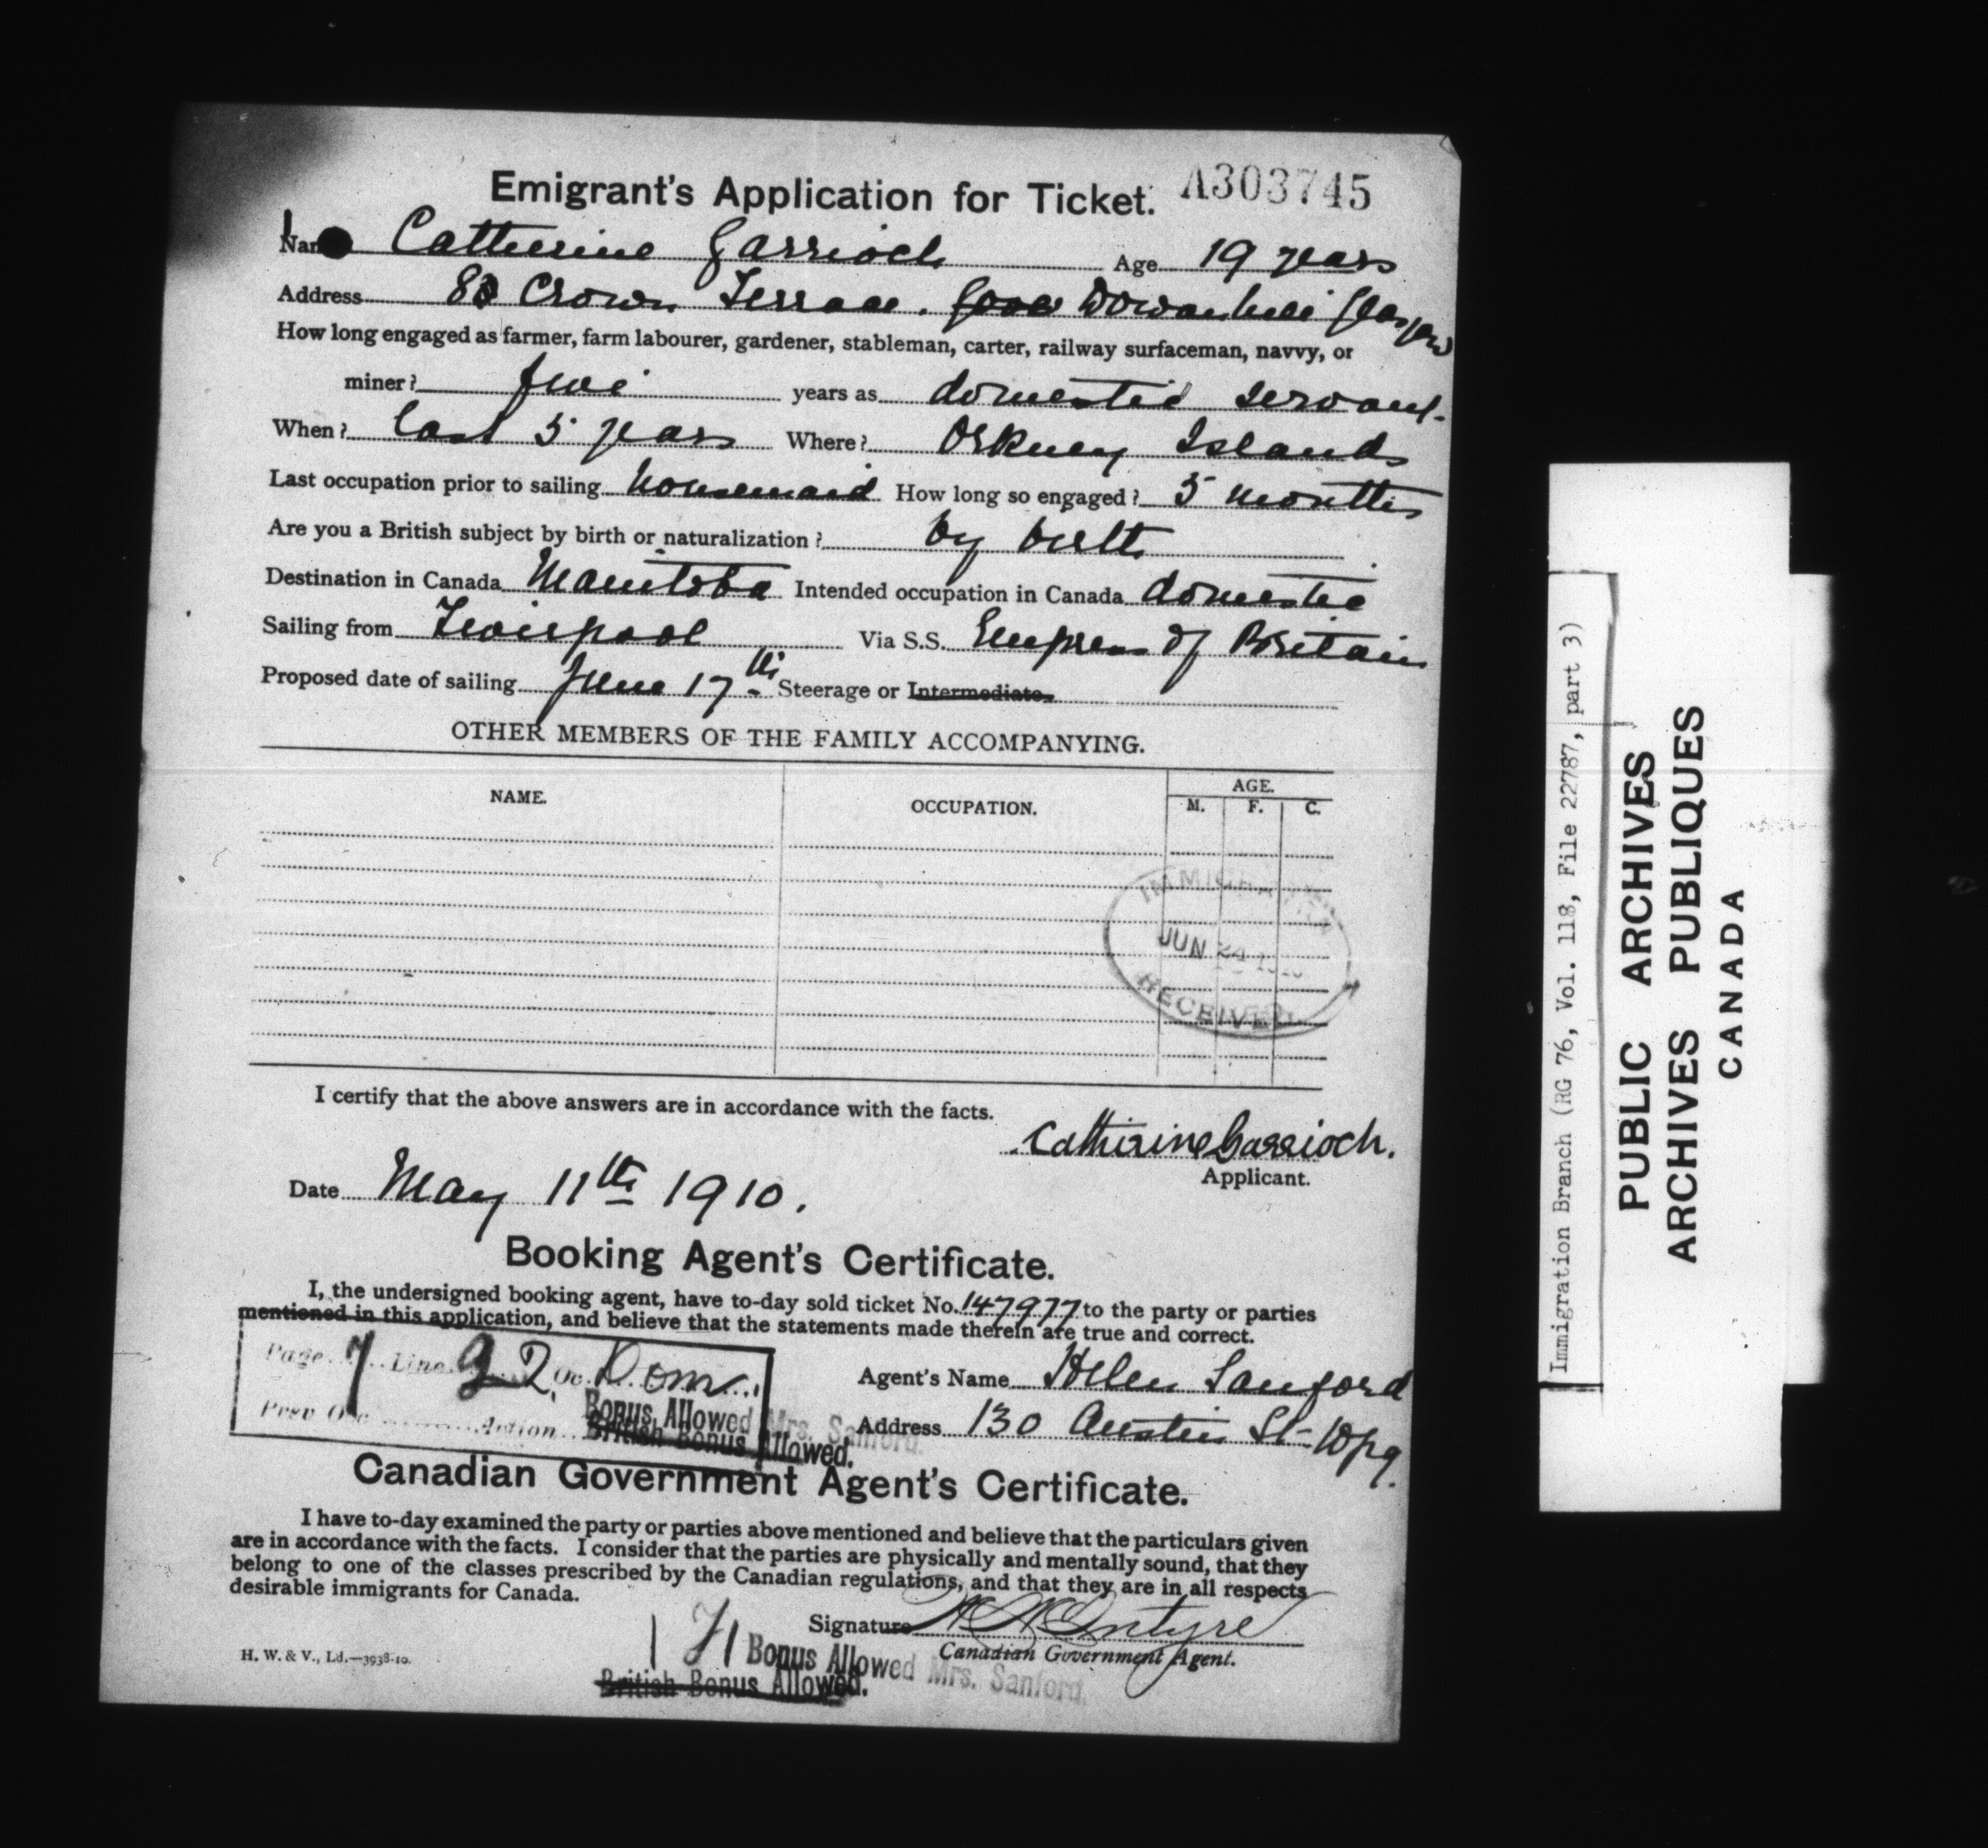 Emigrant's Application for Ticket. A303745
Name Catherine Garrioch Age 19 years
Address 8 Crown Terrace. Dowanhill Glasgow
How long engaged as farmer, farm labourer, gardener, stableman, carter, railway surfaceman, navvy, or
miner? five years as domestic servant.
When? last 5 years Where? Orkney Islands
Last occupation prior to sailing housemaid How long so engaged? 5 months
Are you a British subject by birth or naturalization? by birth
Destination in Canada Manitoba Intended occupation in Canada domestic
Sailing from Liverpool Via S.S. Empress of Britain
Proposed date of sailing June 17th Steerage or Intermediate
OTHER MEMBERS OF THE FAMILY ACCOMPANYING.
NAME. OCCUPATION. AGE.
M. F. C.
IMMIGRATION
JUN 24 1910
RECEIVED
I certify that the above answers are in accordance with the facts.
Cathirine Garrioch.
Applicant.
Date May 11th 1910.
Booking Agent's Certificate.
I, the undersigned booking agent, have to-day sold ticket No. 147977 to the party or parties
mentioned in this application, and believe that the statements made therein are true and correct.
Page 7 Line 22 Oc. Dom.
Agent's Name Helen Sanford
Prev Occ Action Bonus Allowed Mrs. Sanford
British Bonus Allowed.
Address 130 Austin St- Wpg.
Canadian Government Agent's Certificate.
I have to-day examined the party or parties above mentioned and believe that the particulars given
are in accordance with the facts. I consider that the parties are physically and mentally sound, that they
belong to one of the classes prescribed by the Canadian regulations, and that they are in all respects
desirable immigrants for Canada.
Signature McIntyre
Canadian Government Agent.
H. W. & V., Ld.—3938-10.
Bonus Allowed Mrs. Sanford
British Bonus Allowed.
Immigration Branch (RG 76, Vol. 118, File 22787, part 3)
PUBLIC ARCHIVES
ARCHIVES PUBLIQUES
CANADA